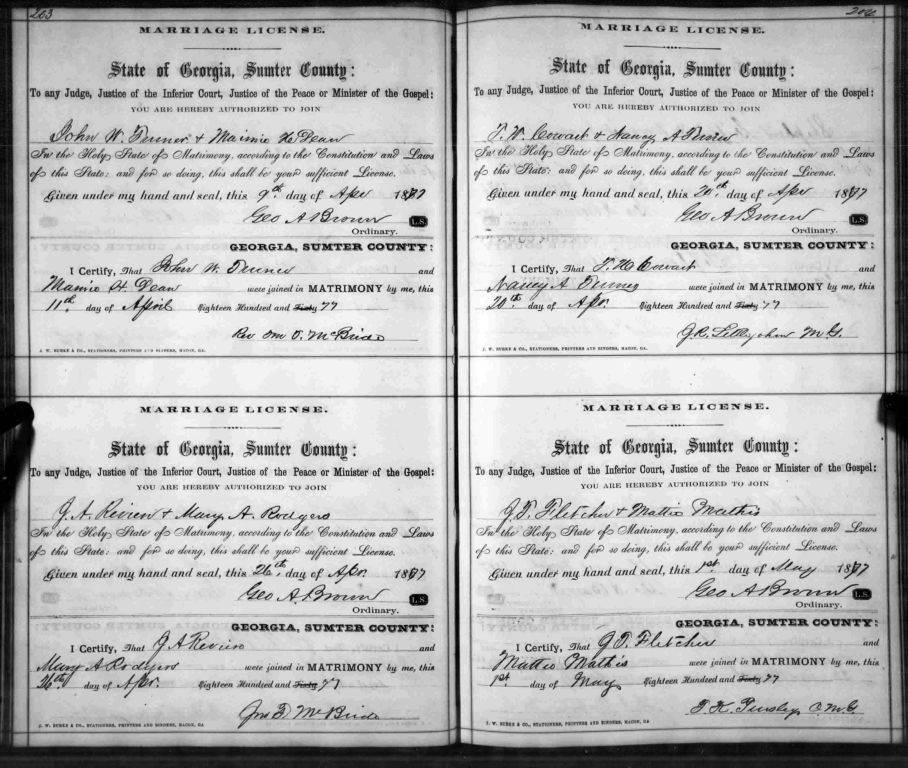 263
MARRIAGE LICENSE.
State of Georgia, Sumter County:
To any Judge, Justice of the Inferior Court, Justice of the Peace or Minister of the Gospel:
YOU ARE HEREBY AUTHORIZED TO JOIN
John W. & Mamie H Dean
In the Holy State of Matrimony, according to the Constitution and Laws
of this State: and for so doing, this shall be your sufficient License.
Given under my hand and seal, this 9th. day of Apr 1877
Geo A Brown L.S.
Ordinary.
GEORGIA, SUMTER COUNTY:
I Certify, That John W. and
Mamie H Dean were joined in MATRIMONY by me, this
11th. day of April Eighteen Hundred and Sixty 77
Rev McBride
J. W. BURKE & CO., STATIONERS, PRINTERS AND BINDERS, MACON, GA.
MARRIAGE LICENSE.
State of Georgia, Sumter County:
To any Judge, Justice of the Inferior Court, Justice of the Peace or Minister of the Gospel:
YOU ARE HEREBY AUTHORIZED TO JOIN
J. A. Reviere & Mary A. Rodgers
In the Holy State of Matrimony, according to the Constitution and Laws
of this State: and for so doing, this shall be your sufficient License.
Given under my hand and seal, this 26th, day of Apr. 1877
Geo A. Brown L.S.
Ordinary.
GEORGIA, SUMTER COUNTY:
I Certify, That J. A Reviere and
Mary A Rodgers were joined in MATRIMONY by me, this
26th day of Apr. Eighteen Hundred and Sixty 77
McBride
J. W. BURKE & CO., STATIONERS, PRINTERS AND BINDERS, MACON, GA
MARRIAGE LICENSE.
State of Georgia, Sumter County:
To any Judge, Justice of the Inferior Court, Justice of the Peace or Minister of the Gospel:
YOU ARE HEREBY AUTHORIZED TO JOIN
Cowart & Nancy A
In the Holy State of Matrimony, according to the Constitution and Laws
of this State: and for so doing, this shall be your sufficient License.
Given under my hand and seal, this 20th. day of Apr 1877
Geo A Brown L.S.
Ordinary.
GEORGIA, SUMTER COUNTY:
I Certify, That Cowart and
Nancy A were joined in MATRIMONY by me, this
20th day of Apr. Eighteen Hundred and Sixty 77
M. G.
J. W. BURKE & CO., STATIONERS, PRINTERS AND BINDERS, MACON, GA.
MARRIAGE LICENSE.
State of Georgia, Sumter County:
To any Judge, Justice of the Inferior Court, Justice of the Peace or Minister of the Gospel:
YOU ARE HEREBY AUTHORIZED TO JOIN
Fletcher & Mattie Mathis
In the Holy State of Matrimony, according to the Constitution and Laws
of this State: and for so doing, this shall be your sufficient License.
Given under my hand and seal, this 1st. day of May 1877
Geo A Brown L.S.
Ordinary.
GEORGIA, SUMTER COUNTY:
I Certify, That Fletcher and
Mattie Mathis were joined in MATRIMONY by me, this
1st. day of May Eighteen Hundred and Sixty 77
J. W. BURKE & CO., STATIONERS, PRINTERS AND BINDERS, MACON, GA